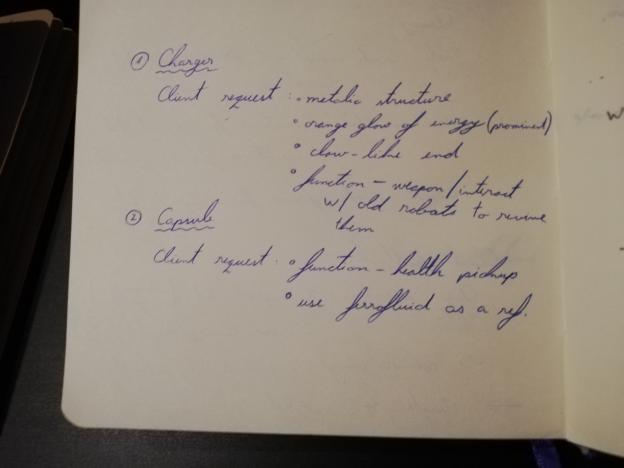 ① Charger
Client request : • metalic structure
• orange glow of energy (prominent)
• claw-like end
• function - weapon/interact
w/ old robots to revive
them
② Capsule
Client request : • function - health pickup
• use ferrofluid as a ref.
W